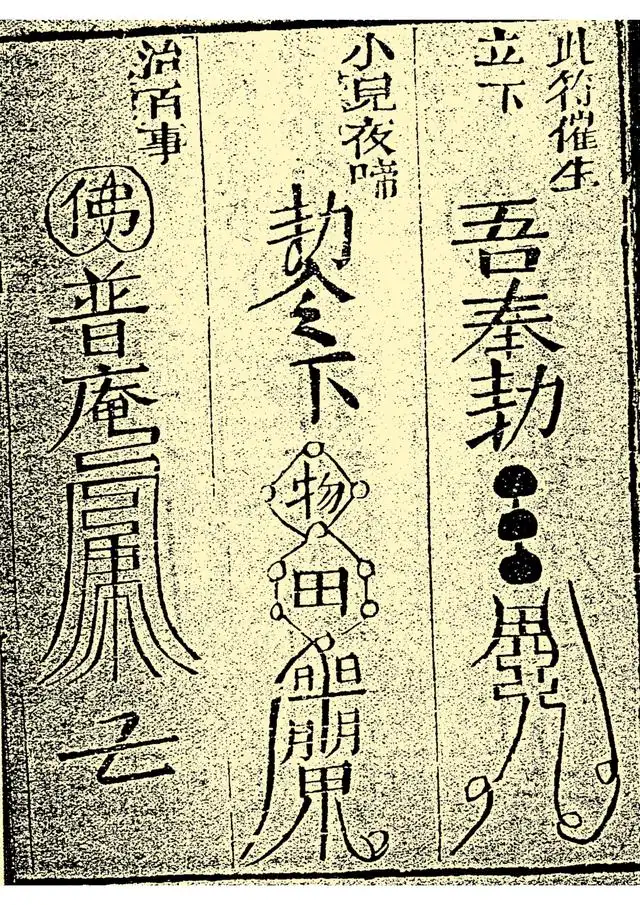 此符催生
立下
吾奉勅
小兒夜啼
勅令下
物
田
治百事
佛
普庵